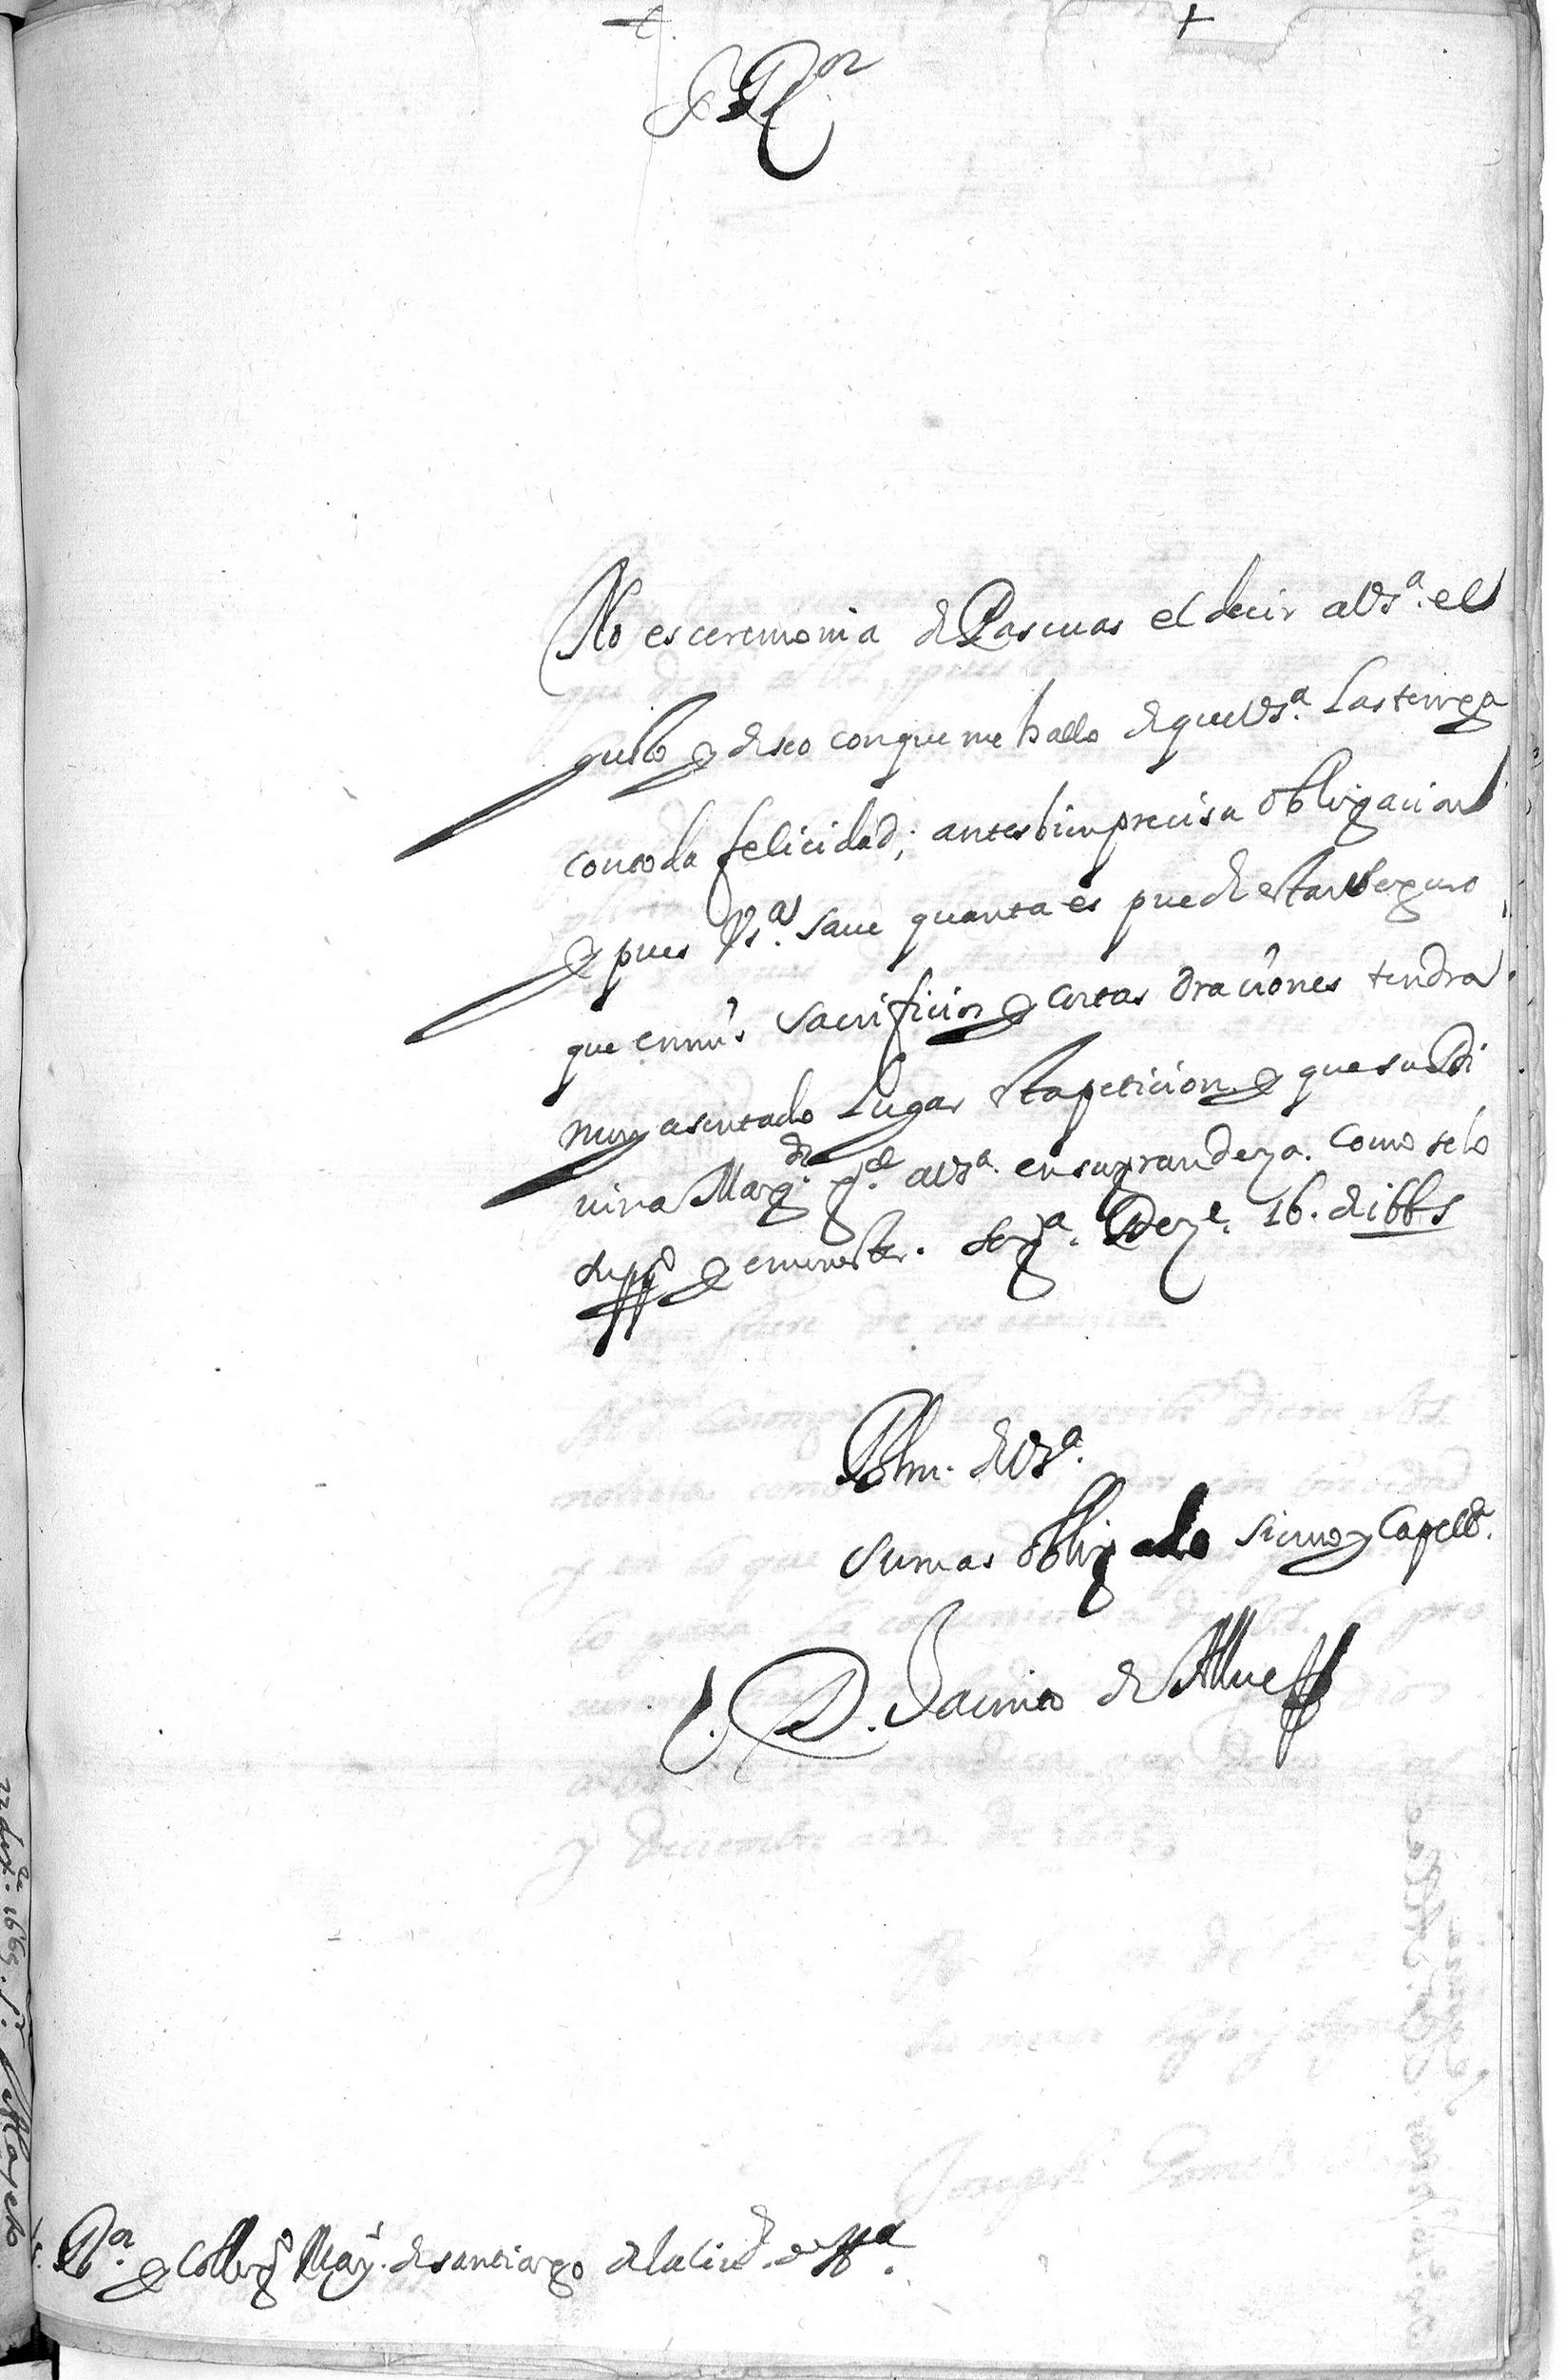 Sr Ror
No es ceremonia de Pascuas el decir a Vsª. el
gusto y deseo con que me hallo de que Vsª. las tenga
con toda felicidad; antes bien precisa obligacion
y pues Vsª. save quanta es puede estar seguro
que en mis sacrificios y cortas oraciones tendra
muy asentado lugar esta peticion y que su Di
vina Magd. gde. a Vsª. en su grandeza. Como se lo
suppco y e menester. Deze. 16. de 1665
Blm. de Vsª.
su mas obligado siervo y Capelln.
D. Jaime de
Ror. y Collegio Mayr. de santiago de la Ciud. de